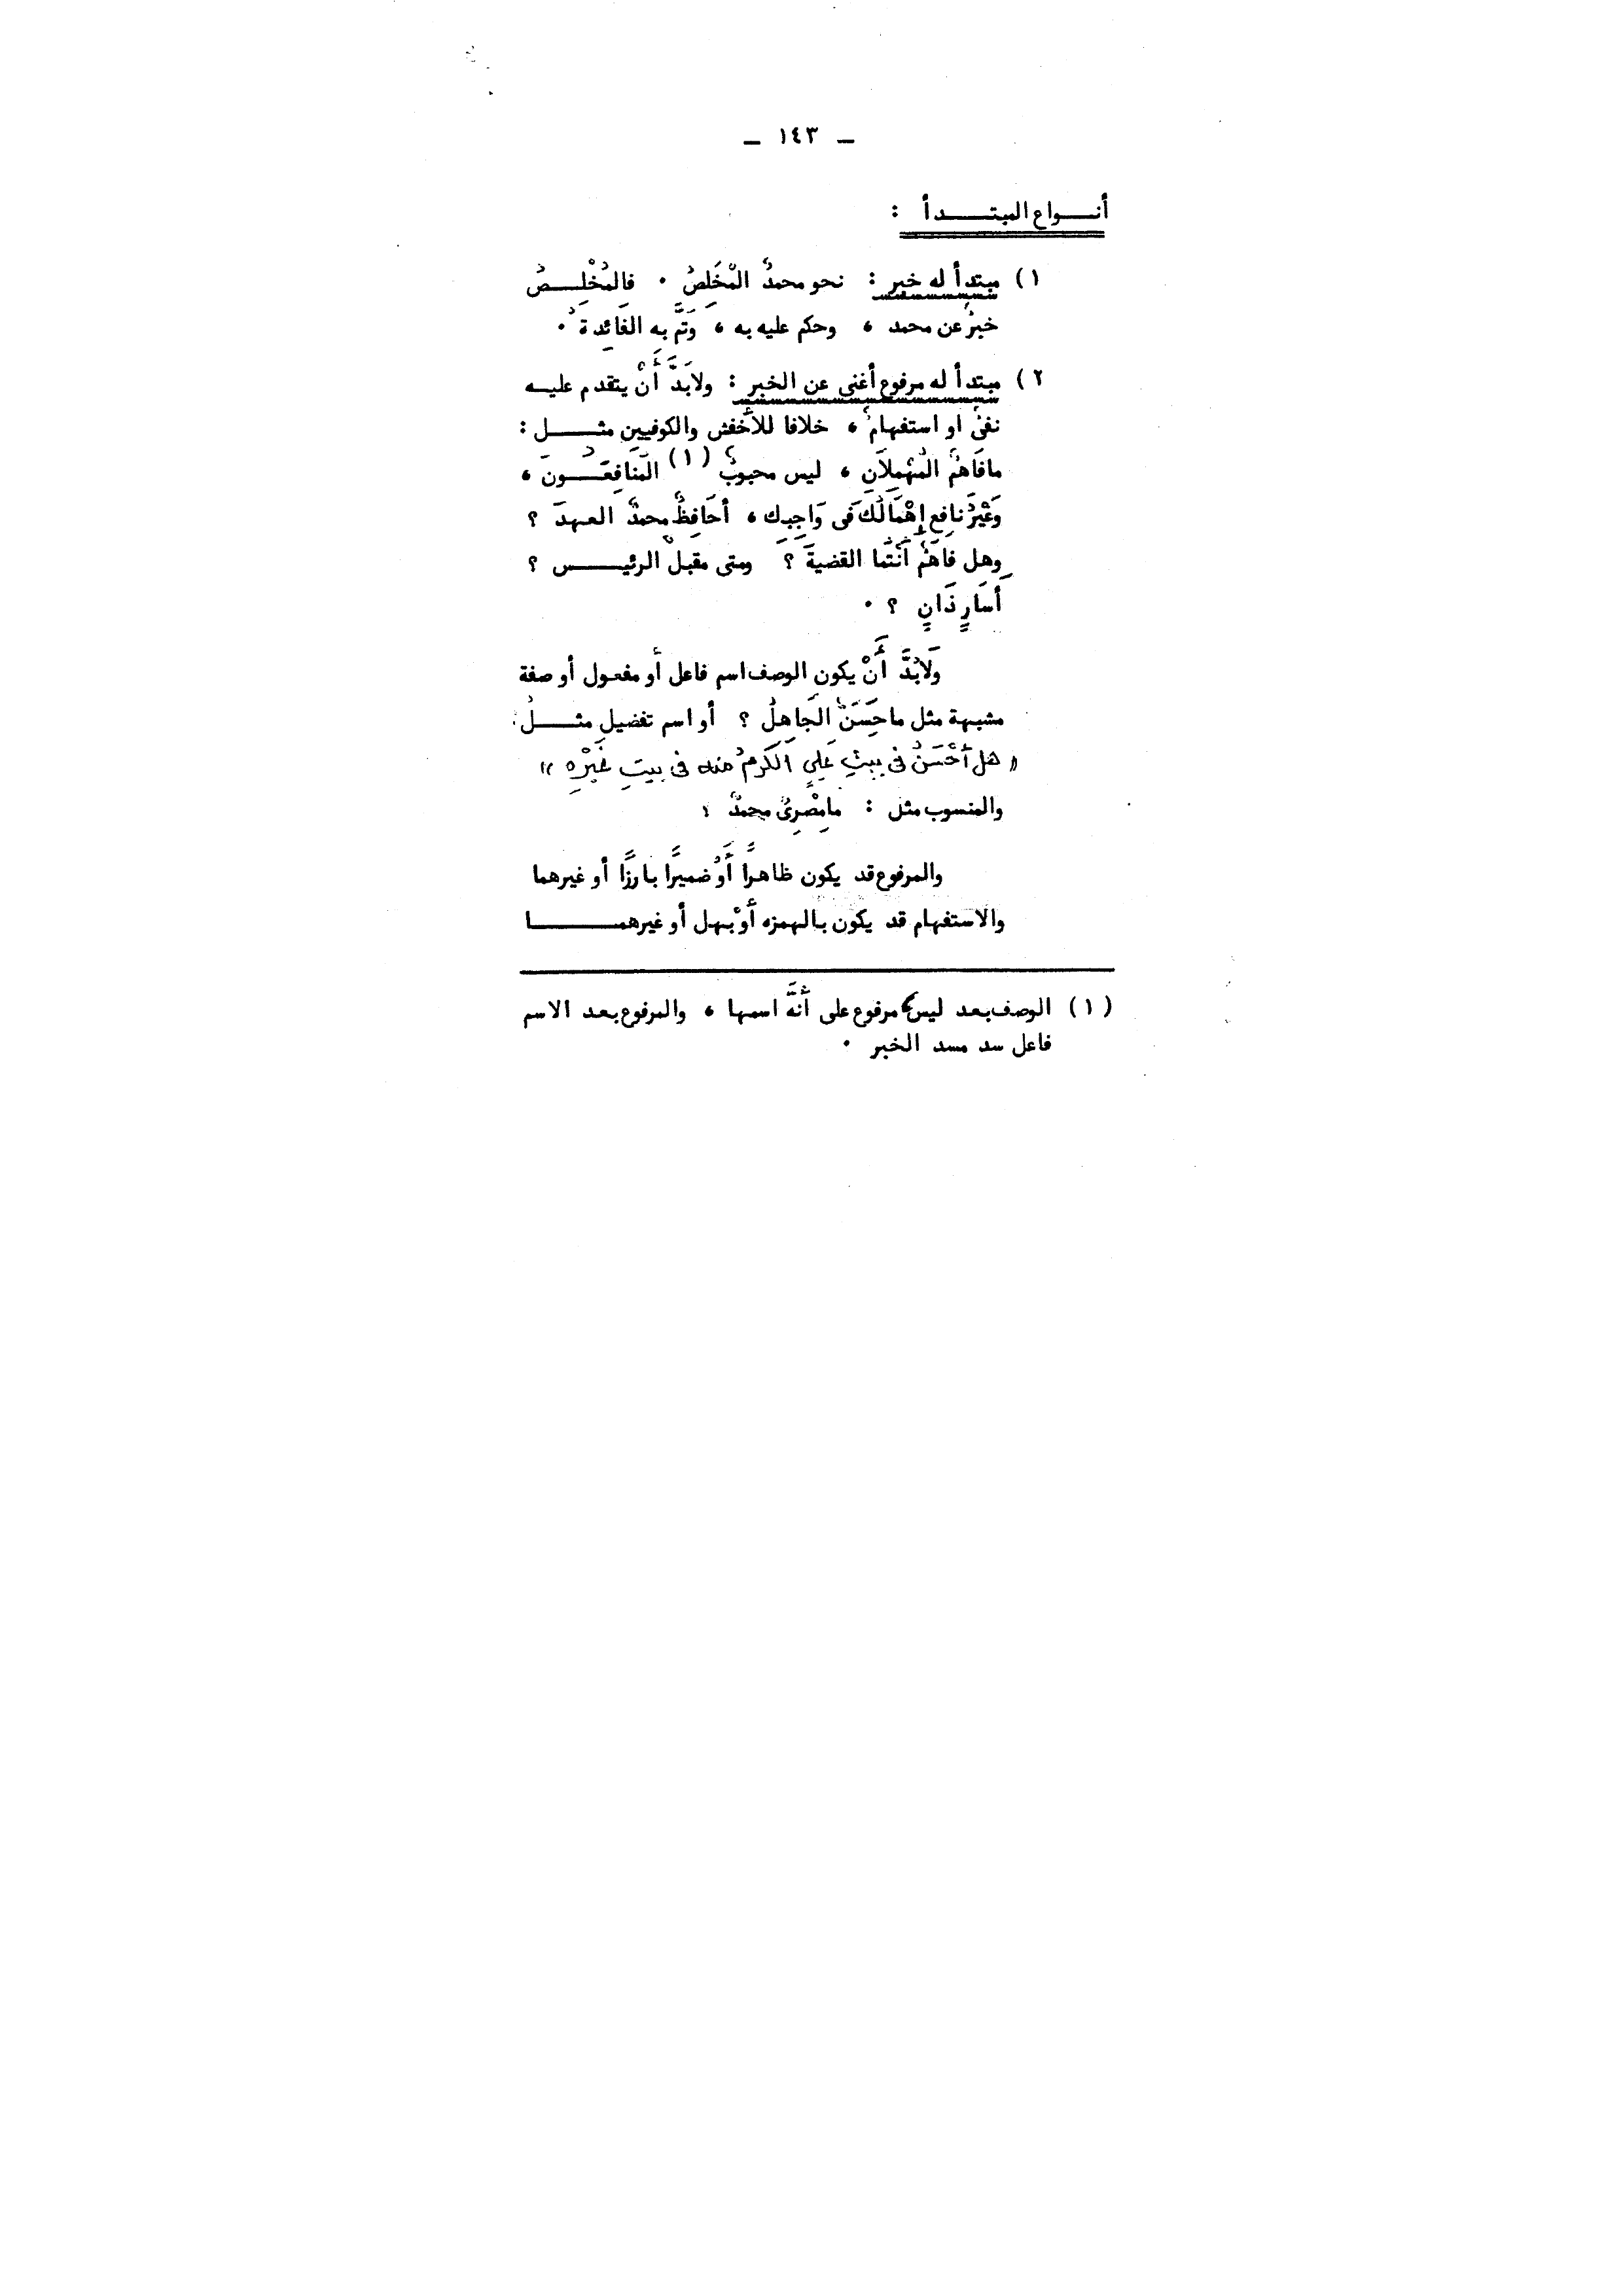 ـ ١٤٣ ـ
أنـــواع المبتــــدأ :
١) مبتدأ له خبر : نحو محمدٌ المُخْلِصُ . فالمُخْلِـــصُ
خبرٌ عن محمد ، وحكم عليه به ، وَتَمَّ به الفَائِدة .
٢) مبتدأ له مرفوع أغنى عن الخبر : ولابَدَّ أَنْ يتقدم عليـه
نفىٌ او استفهامٌ ، خلافا للأَخفش والكوفيين مثــــل :
مافَاهمٌ المُهْمِلاَنِ ، ليس محبوبٌ (١) المَنَافِقُـــونَ ،
وَغَيْرُ نافِعٍ إِهْمَالُكَ فى وَاجِبِك ، أحَافِظٌ محمدٌ العهدَ ؟
وهل فاهَمٌ أَنْتُمَا القضيةَ ؟ ومتى مقبلٌ الرئيــــس ؟
أَسَارٍ ذَانِ ؟ .
وَلاَبُدَّ أَنْ يكون الوصف اسم فاعل أو مفعول أو صفة
مشبهة مثل ماحَسَنٌ الجَاهِلُ ؟ أو اسم تفضيلٍ مثـــلُ :
« هل أَحْسَنُ فى بيتِ عَلِىٍ الكَرمُ منه فى بيتِ غَيْرِه »
والمنسوب مثل : مامِصْرِىٌ محمدٌ ؟
والمرفوع قد يكون ظاهرًا أَوْ ضميرًا بارزًا أو غيرهما
والاستفهام قد يكون بالهمزه أَوْ بهل أو غيرهمـــــا
(١) الوصف بعد ليس مرفوع على أَنَّه اسمها ، والمرفوع بعد الاسم
فاعل سد مسد الخبر .